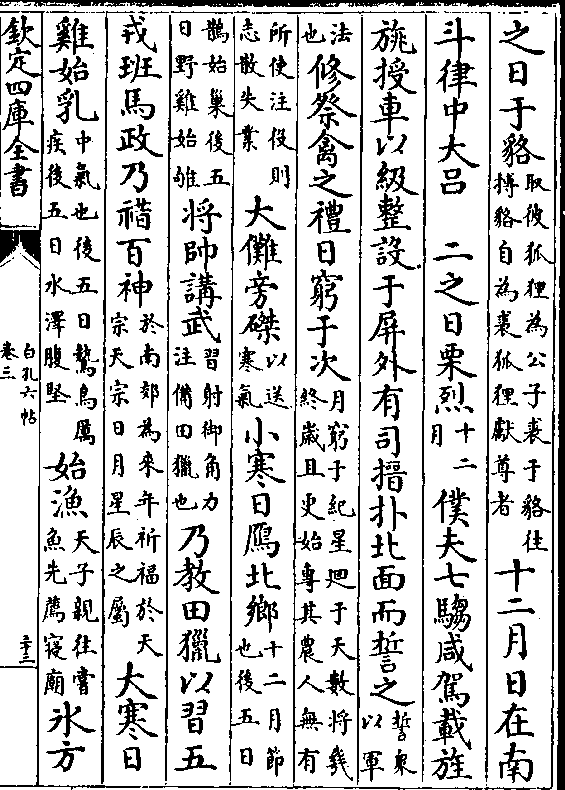 之日于貉取彼狐狸為公子裘于貉往搏貉自為裘狐狸獻尊者十二月日在南
斗律中大呂　二之日栗烈十二月僕夫七騶咸駕載旌
旐授車以級整設于屏外有司搢扑北面而誓之誓衆以軍
法也修祭禽之禮日窮于次月窮于紀星迴于天數將幾終歲且更始專其農人無有
所使注役則志散失業大儺旁磔以送寒氣小寒日鴈北鄉十二月節也後五日
鵲始巢後五日野雞始雊將帥講武習射御角力注備田獵也乃教田獵以習五
戎班馬政乃禋百神於南郊為來年祈福於天宗天宗日月星辰之屬大寒日
雞始乳中氣也後五日鷙鳥厲疾後五日水澤腹堅始漁天子親往嘗魚先薦寢廟氷方
欽定四庫全書
白孔六帖
卷三
二十三